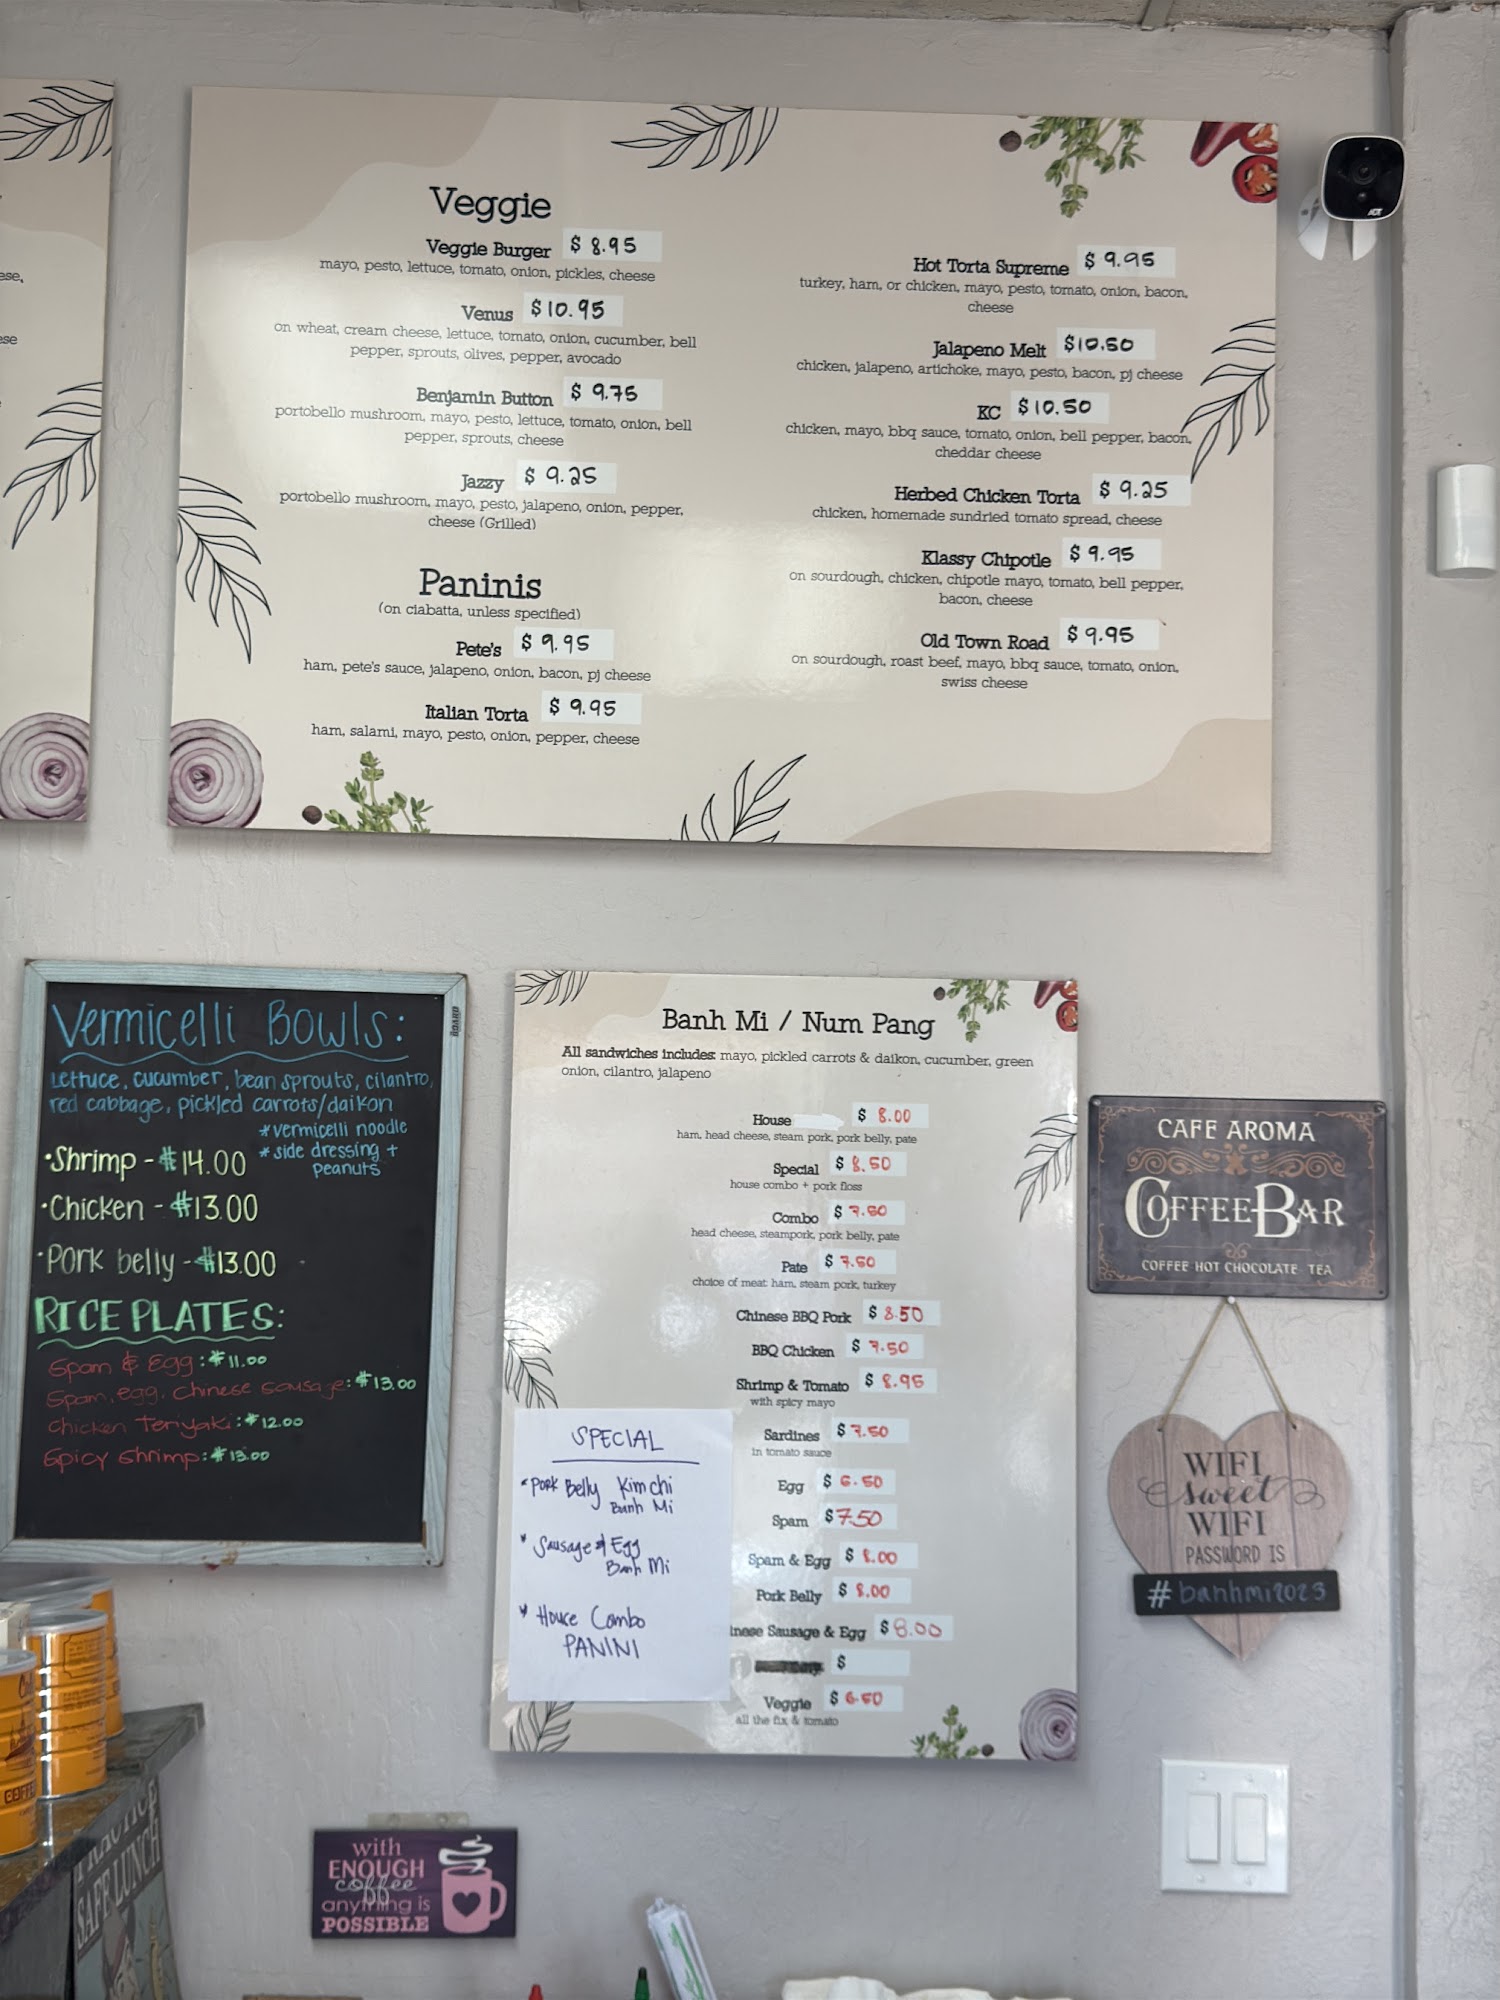 ese,
ese
Veggie
Veggie Burger $ 8.95
mayo, pesto, lettuce, tomato, onion, pickles, cheese
Venus $10.95
on wheat, cream cheese, lettuce, tomato, onion, cucumber, bell
pepper, sprouts, olives, pepper, avocado
Benjamin Button $ 9.75
portobello mushroom, mayo, pesto, lettuce, tomato, onion, bell
pepper, sprouts, cheese
Jazzy $ 9.25
portobello mushroom, mayo, pesto, jalapeno, onion, pepper,
cheese (Grilled)
Paninis
(on ciabatta, unless specified)
Pete's $ 9.95
ham, pete's sauce, jalapeno, onion, bacon, pj cheese
Italian Torta $ 9.95
ham, salami, mayo, pesto, onion, pepper, cheese
Hot Torta Supreme $ 9.95
turkey, ham, or chicken, mayo, pesto, tomato, onion, bacon,
cheese
Jalapeno Melt $10.50
chicken, jalapeno, artichoke, mayo, pesto, bacon, pj cheese
KC $10.50
chicken, mayo, bbq sauce, tomato, onion, bell pepper, bacon,
cheddar cheese
Herbed Chicken Torta $ 9.25
chicken, homemade sundried tomato spread, cheese
Klassy Chipotle $ 9.95
on sourdough, chicken, chipotle mayo, tomato, bell pepper,
bacon, cheese
Old Town Road $ 9.95
on sourdough, roast beef, mayo, bbq sauce, tomato, onion,
swiss cheese
ADT
Vermicelli Bowls:
Lettuce, cucumber, bean sprouts, cilantro,
red cabbage, pickled carrots/daikon
*vermicelli noodle
*side dressing +
peanuts
•Shrimp - $14.00
•Chicken - $13.00
•Pork belly - $13.00
RICE PLATES:
Spam & Egg: $11.00
Spam, egg, Chinese sausage: $13.00
Chicken Teriyaki: $12.00
Spicy Shrimp: $13.00
BOARD
Banh Mi / Num Pang
All sandwiches includes: mayo, pickled carrots & daikon, cucumber, green
onion, cilantro, jalapeno
House $ 8.00
ham, head cheese, steam pork, pork belly, pate
Special $ 8.50
house combo + pork floss
Combo $ 7.50
head cheese, steampork, pork belly, pate
Pate $ 7.50
choice of meat: ham, steam pork, turkey
Chinese BBQ Pork $ 8.50
BBQ Chicken $ 7.50
Shrimp & Tomato $ 8.95
with spicy mayo
Sardines $ 7.50
in tomato sauce
Egg $ 6.50
Spam $7.50
Spam & Egg $ 8.00
Pork Belly $ 8.00
nese Sausage & Egg $8.00
$
Veggie $ 6.50
all the fix & tomato
SPECIAL
* Pork Belly Kimchi
Banh Mi
* Sausage & Egg
Banh Mi
* House Combo
PANINI
CAFE AROMA
COFFEE BAR
COFFEE HOT CHOCOLATE TEA
WIFI
sweet
WIFI
PASSWORD IS
#banhmi2023
with
ENOUGH
coffee
anything is
POSSIBLE
SAFE LUNCH